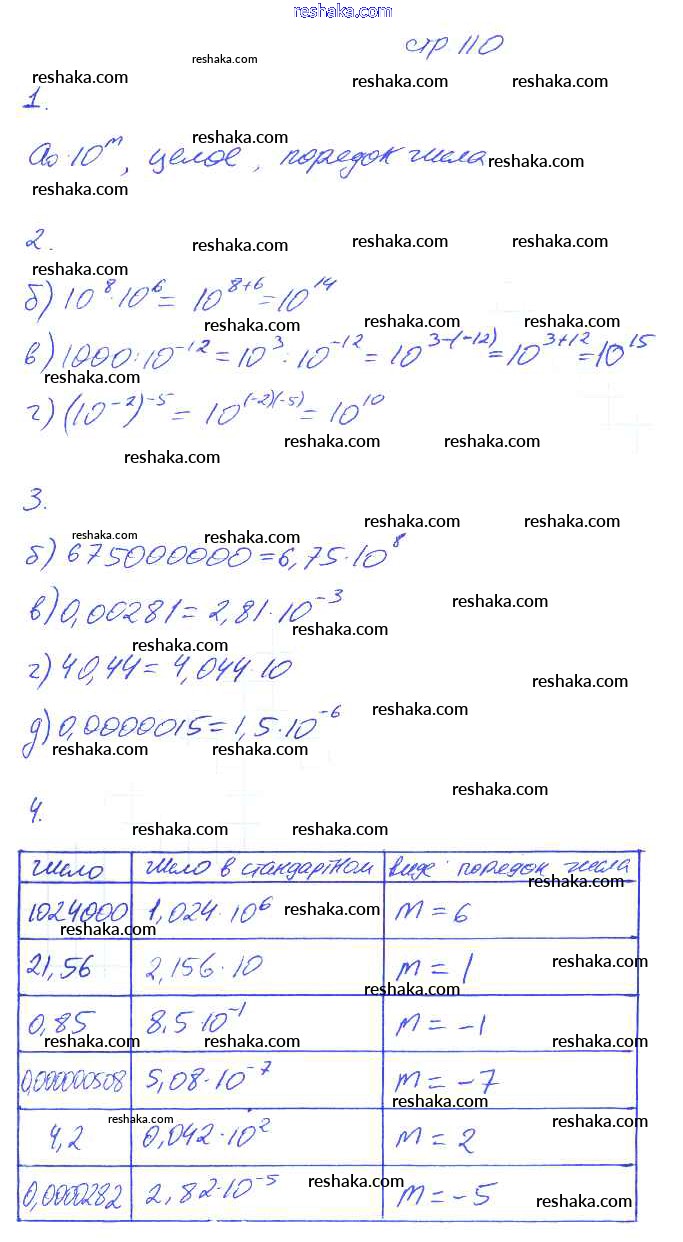 reshaka.com
стр 110
reshaka.com
reshaka.com reshaka.com reshaka.com
1.
reshaka.com
a₀·10ᵐ, целое, порядок числа reshaka.com
reshaka.com
2.
reshaka.com reshaka.com reshaka.com
reshaka.com
б) 10⁸·10⁶ = 10⁸⁺⁶ = 10¹⁴
reshaka.com reshaka.com reshaka.com
в) 1000:10⁻¹² = 10³:10⁻¹² = 10³⁻⁽⁻¹²⁾ = 10³⁺¹² = 10¹⁵
reshaka.com
г) (10⁻²)⁻⁵ = 10⁽⁻²⁾⁽⁻⁵⁾ = 10¹⁰
reshaka.com reshaka.com
reshaka.com
3.
reshaka.com reshaka.com
reshaka.com reshaka.com
б) 675000000 = 6,75·10⁸
в) 0,00281 = 2,81·10⁻³
reshaka.com
reshaka.com
reshaka.com
г) 40,44 = 4,044·10
reshaka.com
reshaka.com
д) 0,0000015 = 1,5·10⁻⁶
reshaka.com reshaka.com
reshaka.com
4.
reshaka.com reshaka.com
Число Число в стандартном виде порядок числа
reshaka.com
1024000 1,024·10⁶ reshaka.com m = 6
reshaka.com
21,56 2,156·10 m = 1 reshaka.com
reshaka.com
0,85 8,5·10⁻¹ m = -1
reshaka.com reshaka.com reshaka.com
0,000000508 5,08·10⁻⁷ m = -7
reshaka.com
reshaka.com reshaka.com
4,2 0,042·10² m = 2
0,0000282 2,82·10⁻⁵ m = -5
reshaka.com reshaka.com